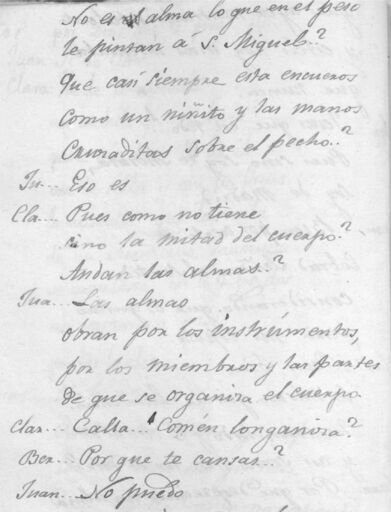 No es alma lo que en el peso
le pintan á S. Miguel?
que casi siempre esta encueros
como un niñito y las manos
Cruzaditas sobre el pecho..?
Ju... Eso es
Cla... Pues como no tiene
sino la mitad del cuerpo?
Andan las almas..?
Jua... Las almas
obran por los instrúmentos,
por los miembros y las partes
de que se organiza el cuerpo
Clar... Calla... Comén longaniza?
Ber... Por que te cansas..?
Juan... No puedo